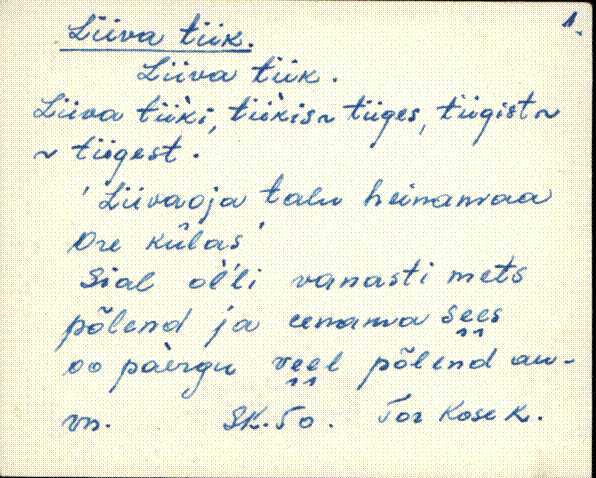 1.
Liiva tiik.
Liiva tiik.
Liiva tiiki, tiikis ~ tiiges, tiigist ~
~ tiigest.
'Liivaoja talu heinamaa
Ore külas'
Sial ol'li vanasti mets
põlend ja eenama sees
oo pàergu veel põlend au-
vn. SK. To. Tor Kosek.